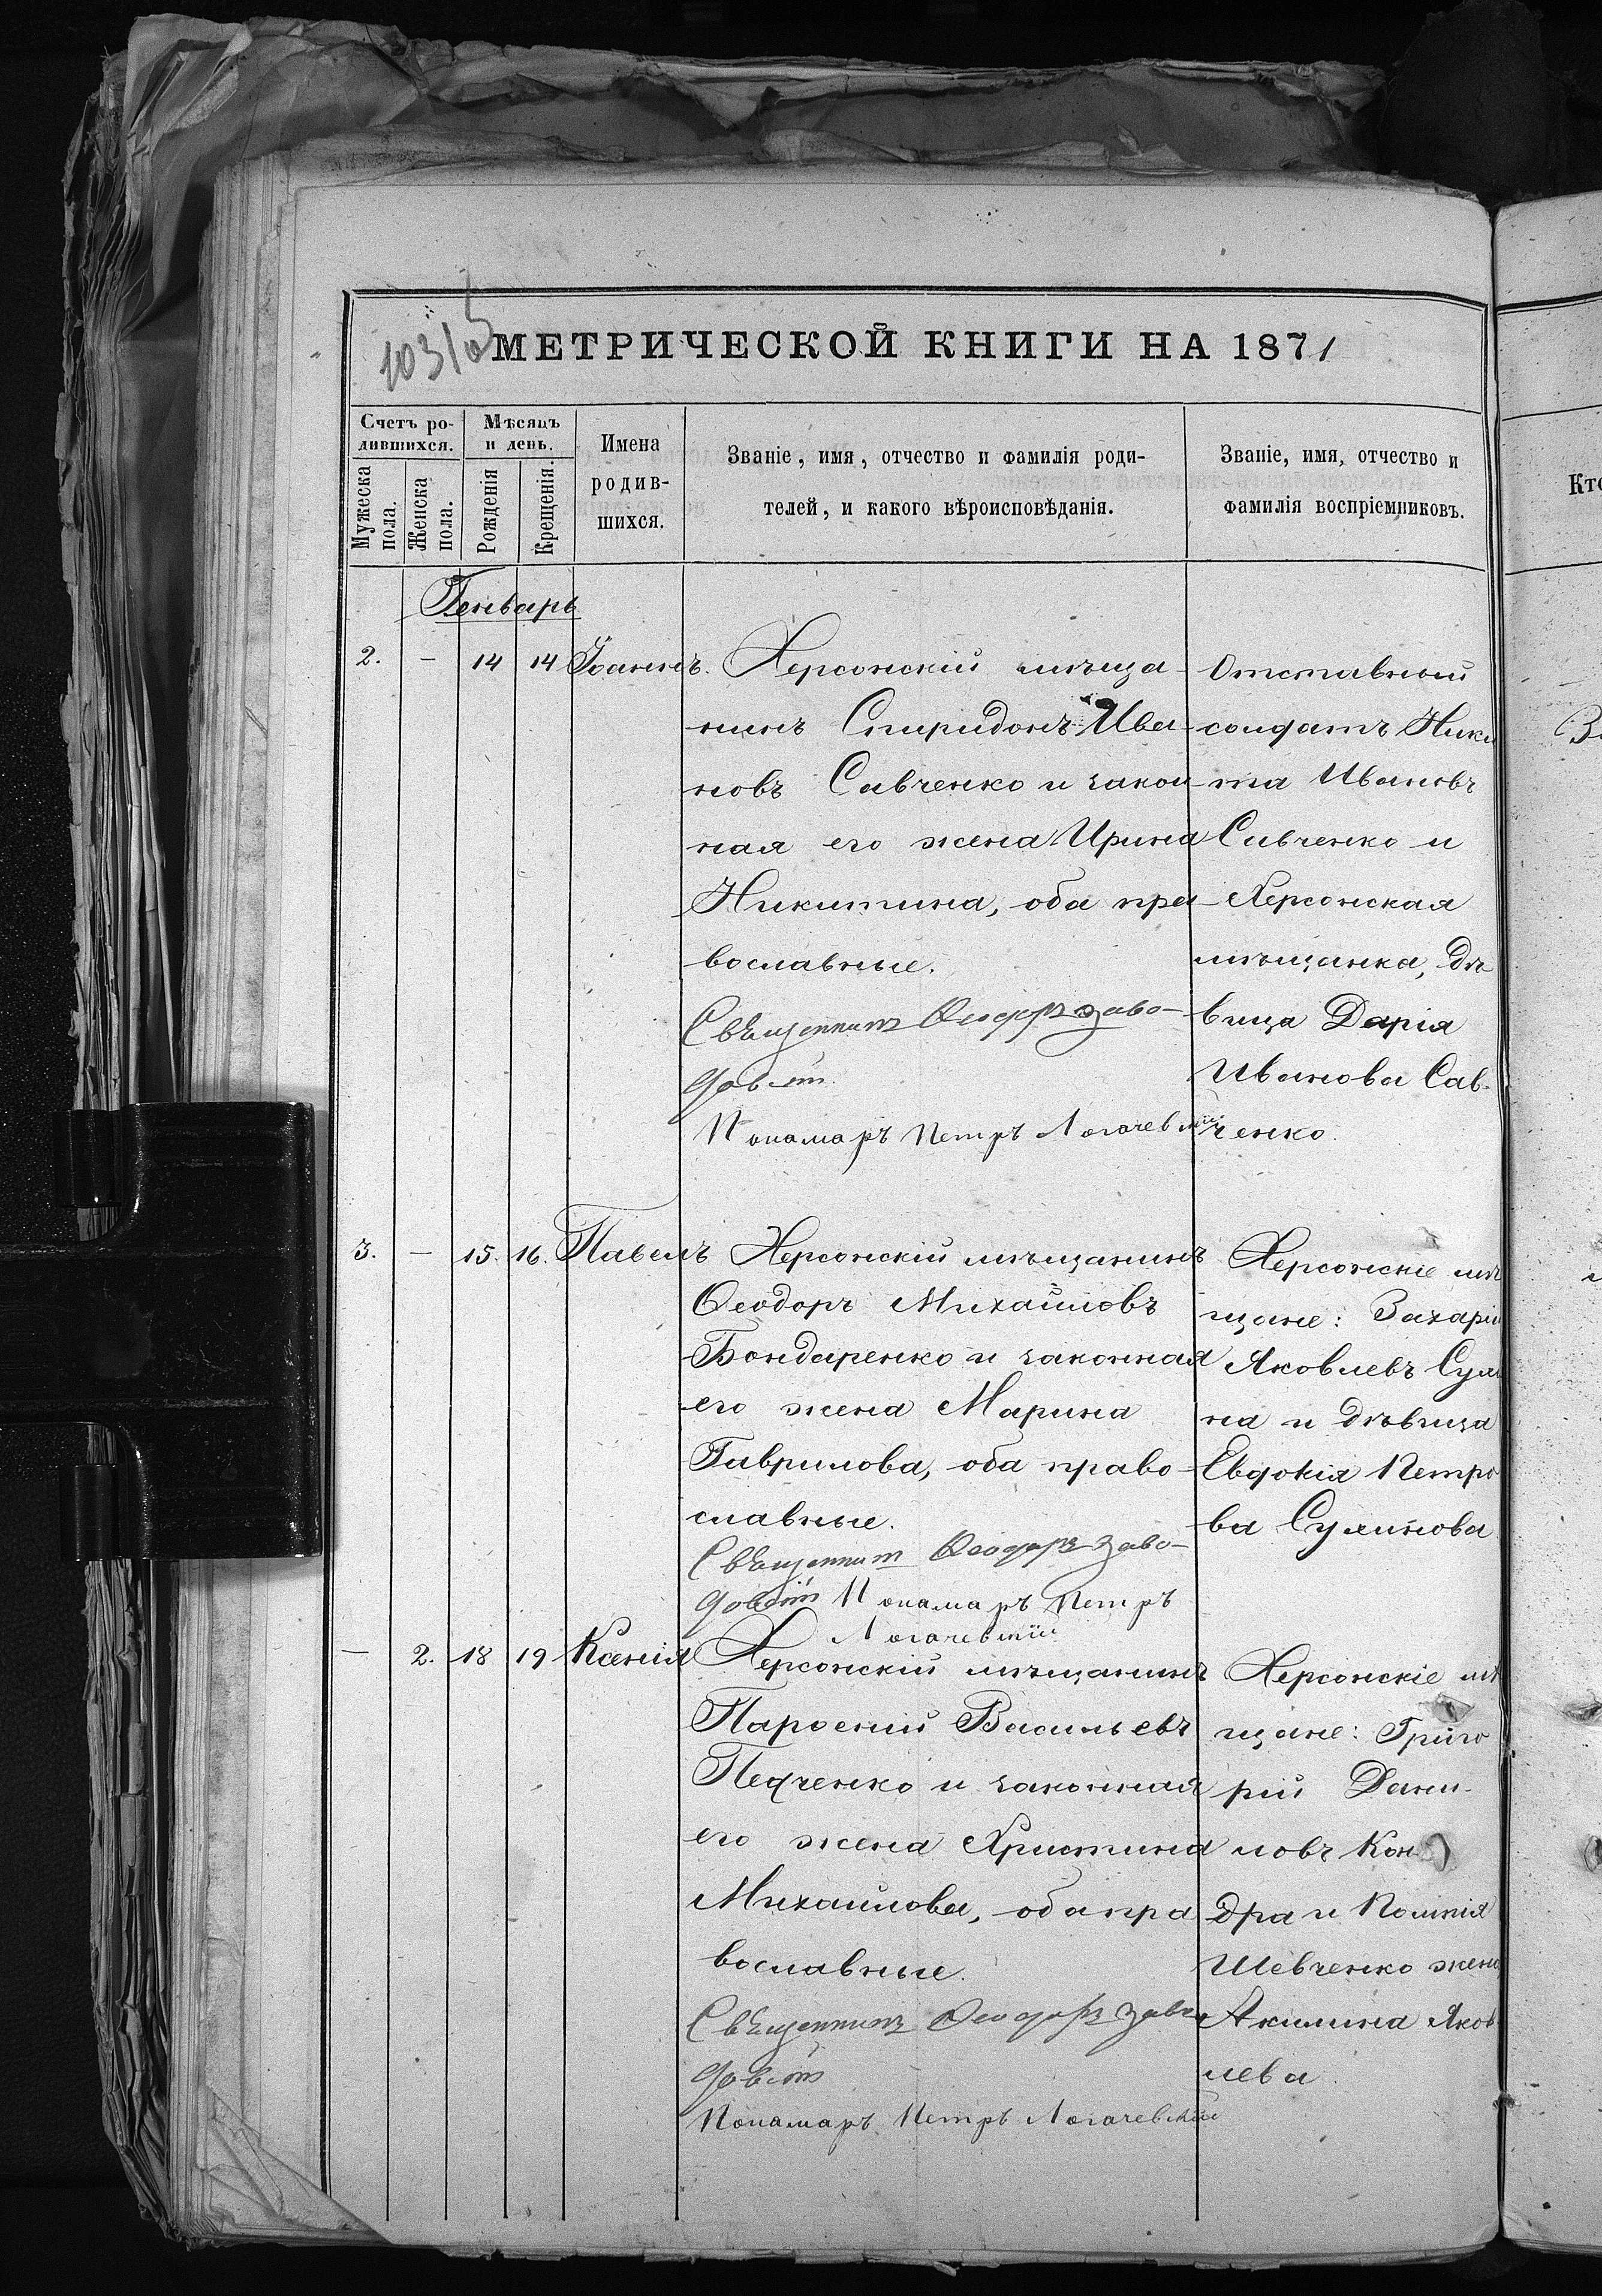 103/05
МЕТРИЧЕСКОЙ КНИГИ НА 1871
Счетъ ро-
дившихся.
Мужеска
пола.
Женска
пола.
Мѣсяцъ
и день.
Рожденія
Крещенія.
Имена
родив-
шихся.
Званіе, имя, отчество и фамилія роди-
телей, и какого вѣроисповѣданія.
Званіе, имя, отчество и
фамилія воспріемниковъ.
Кто
Генварь
2. — 14 14 Іоаннъ.
Херсонскій мѣща-
нинъ Спиридонъ Ива-
новъ Савченко и закон-
ная его жена Ирина
Никитина, оба пра-
вославные.
Священникъ Ѳеодоръ Заво-
довскій
Пономаръ Петръ Логачевскій
Отставный
солдатъ Ники
та Ивановъ
Савченко и
Херсонская
мѣщанка, дѣ-
вица Дарія
Иванова Сав-
ченко.
3. — 15. 16. Павелъ
Херсонскій мѣщанинъ
Ѳеодоръ Михайловъ
Бондаренко и законная
его жена Марина
Гаврилова, оба право-
славные.
Священникъ Ѳеодоръ Заво-
довскій Пономаръ Петръ
Логачевскій
Херсонскіе мѣ
щане: Захарій
Яковлевъ Сули
на и дѣвица
Евдокія Петро
ва Сулинова
— 2. 18 19 Ксенія
Херсонскій мѣщанинъ
Парѳеній Васильевъ
Педченко и законная
его жена Христина
Михайлова, оба пра
вославные.
Священникъ Ѳеодоръ Заво-
довскій
Пономаръ Петръ Логачевскій
Херсонскіе мѣ
щане: Григо
рій Дани-
ловъ Кон-
дра и
Шевченко жена
Акилина Яков
лева.